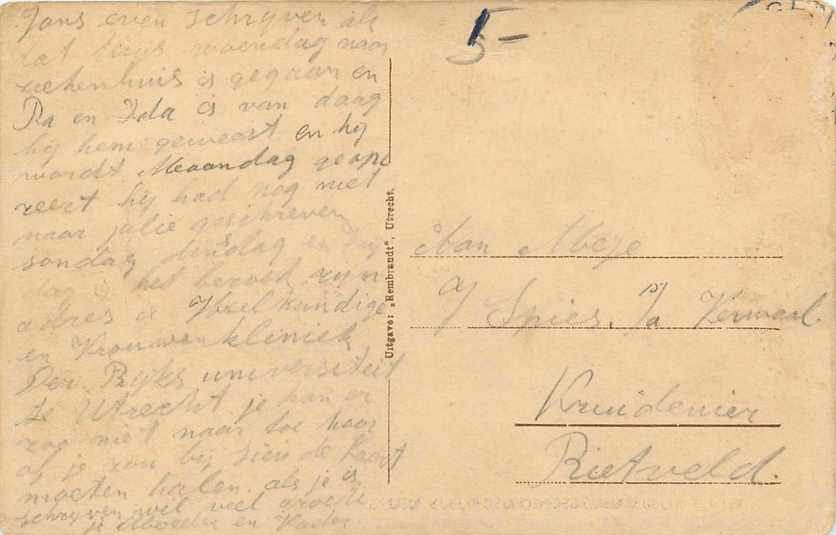 Jans even schrijven als
dat Thijs woensdag naar
ziekenhuis is gegaan en
Pa en Ida is van daag
bij hem geweest en hij
wordt Maandag geope
reert hij had nog niet
naar julie geschreven
sondag dinsdag en Vrij
dag is het bezoek zijn
adres is Heelkundige
en Vrouwenkliniek
Der Rijks universiteit
te Utrecht je kan er
zoo niet naar toe hoor
of je zou bij Sien de Kaart
moeten halen als je is
schryven wil veel groete
je Moeder en Vader
5-
Uitgave: „Rembrandt", Utrecht.
Aan Mej
Spies, p/a
Kruidenier
Rietveld.